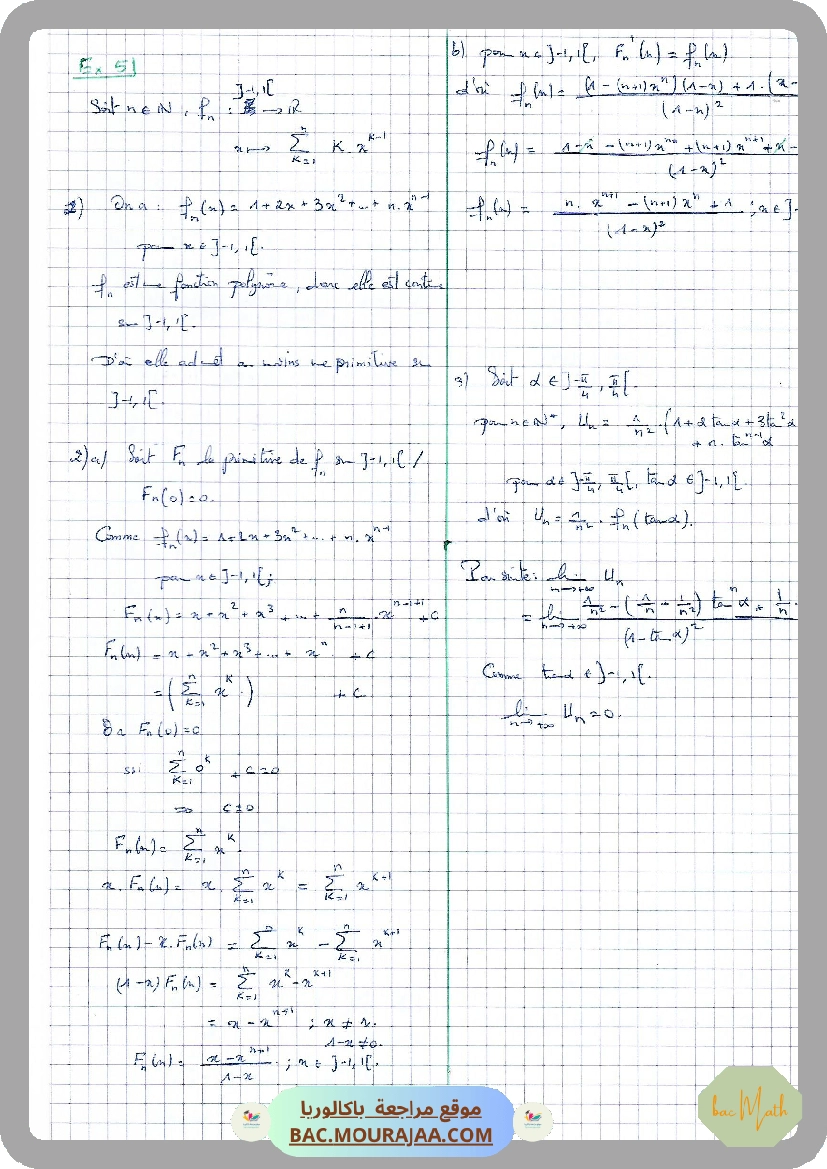 Ex 51
Soit n ∈ ℕ, fₙ : ]-1,1[ → ℝ
x ↦ Σ_{K=1}^{n} K·x^{K-1}
1) On a : fₙ(x) = 1+2x+3x²+...+n.x^{n-1}
pour x ∈ ]-1,1[.
fₙ est une fonction polynôme, donc elle est continue
sur ]-1,1[.
D'où elle admet au moins une primitive sur
]-1,1[.
2)a) Soit Fₙ la primitive de fₙ sur ]-1,1[ /
Fₙ(0)=0.
Comme fₙ(x) = 1+2x+3x²+...+n.x^{n-1}
pour x ∈ ]-1,1[;
Fₙ(x) = x+x²+x³+...+ n/(n-1+1) x^{n-1+1} +C
Fₙ(x) = x+x²+x³+...+x^{n} +C
= (Σ_{K=1}^{n} x^{K}) +C
Or Fₙ(0)=0
ssi Σ_{K=1}^{n} 0^{K} +C=0
⇒ C=0
Fₙ(x) = Σ_{K=1}^{n} x^{K}.
x.Fₙ(x) = x.Σ_{K=1}^{n} x^{K} = Σ_{K=1}^{n} x^{K+1}
Fₙ(x)-x.Fₙ(x) = Σ_{K=1}^{n} x^{K} - Σ_{K=1}^{n} x^{K+1}
(1-x)Fₙ(x) = Σ_{K=1}^{n} x^{K}-x^{K+1}
= x-x^{n+1} ; x ≠ 1.
1-x≠0.
Fₙ(x) = (x-x^{n+1})/(1-x) ; x ∈ ]-1,1[.
b) pour x ∈ ]-1,1[, Fₙ'(x) = fₙ(x)
d'où fₙ(x) = ((1-(n+1)x^{n})(1-x)+1.(x-
(1-x)²
fₙ(x) = 1-x-(n+1)x^{n}+(n+1)x^{n+1}+x-
(1-x)²
fₙ(x) = (n.x^{n+1}-(n+1)x^{n}+1)/(1-x)² ; x ∈ ]-
3) Soit α ∈ ]-π/4, π/4[.
pour n ∈ ℕ*, Uₙ = 1/n².(1+2tanα+3tan²α
+n.tan^{n-1}α
pour α ∈ ]-π/4, π/4[, tanα ∈ ]-1,1[
d'où Uₙ = 1/n².fₙ(tanα).
Par suite: lim_{n→+∞} Uₙ
= lim_{n→+∞} 1/n² - (1/n - 1/n²) tan^{n}α + 1/n
(1-tanα)²
Comme tanα ∈ ]-1,1[.
lim_{n→+∞} Uₙ=0.
موقع مراجعة باكالوريا
BAC.MOURAJAA.COM
bac Math